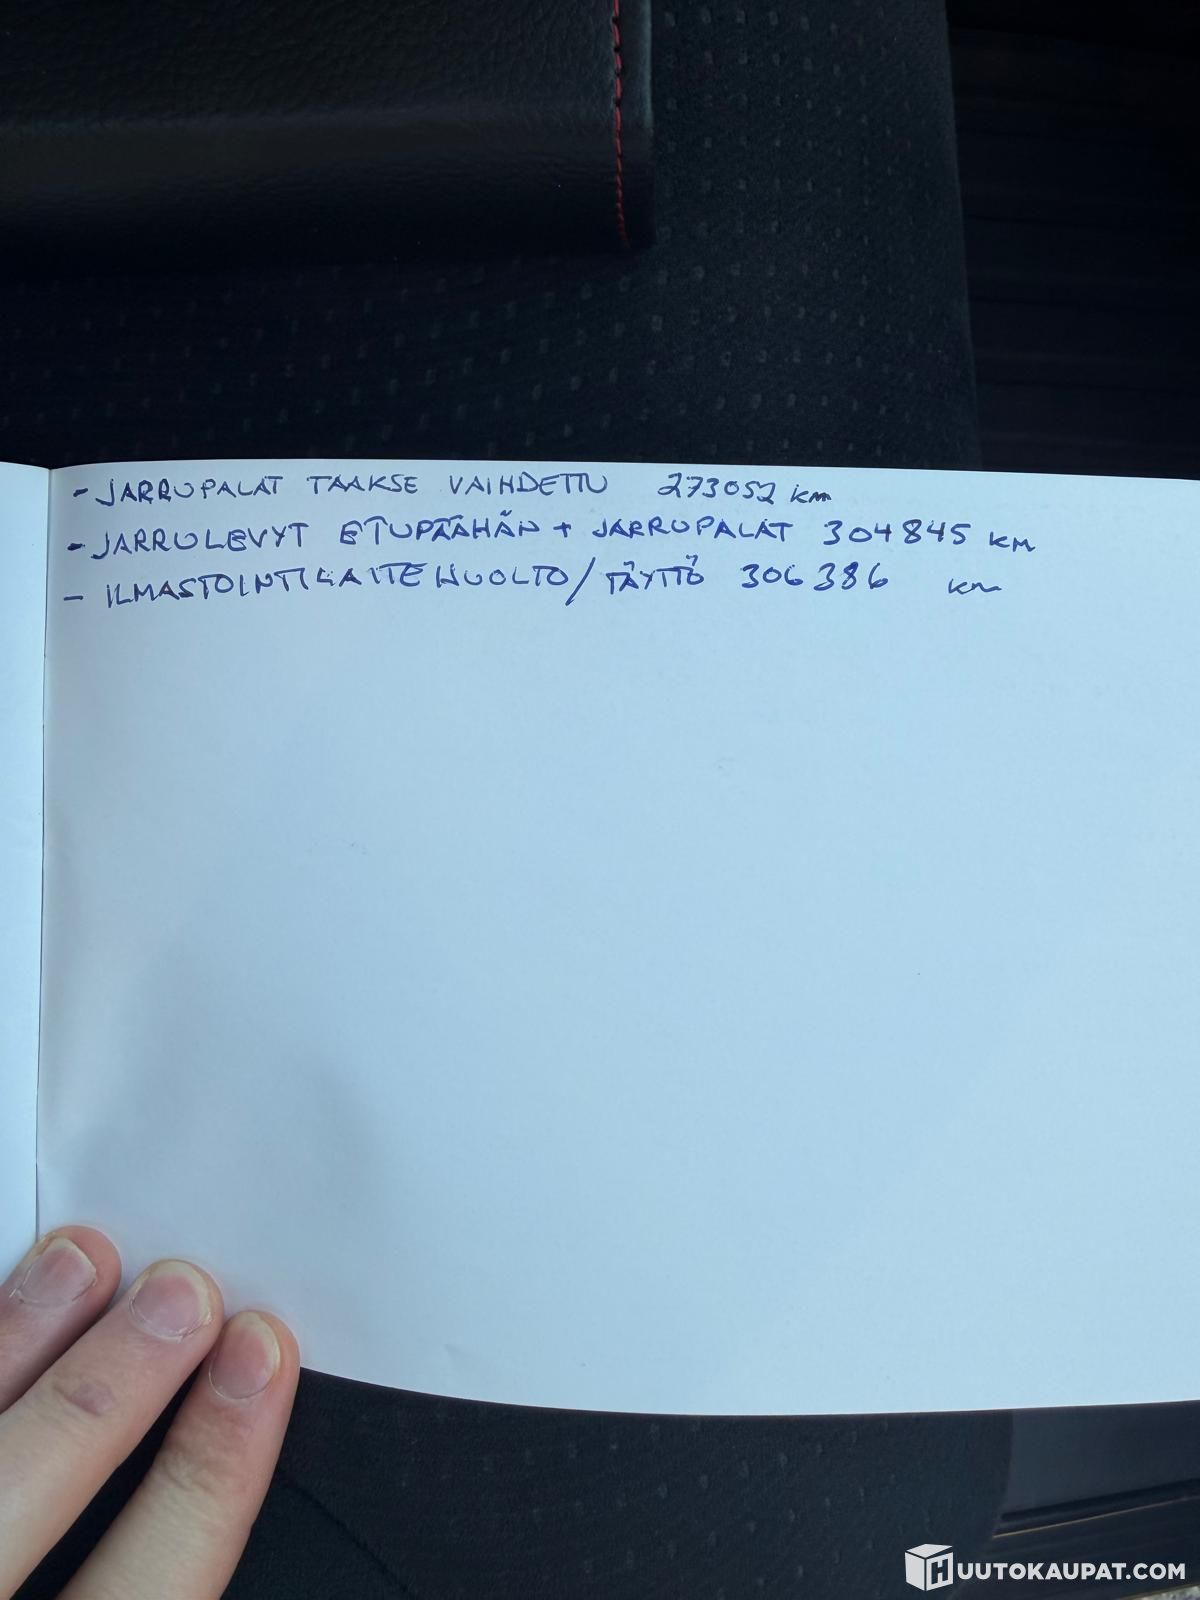 - JARRUPALAT TAAKSE VAIHDETTU 273052 km
- JARRULEVYT ETUPÄÄHÄN + JARRUPALAT 304845 KM
- ILMASTOINTILAITE HUOLTO/TÄYTTÖ 306386 km
HUUTOKAUPAT.COM